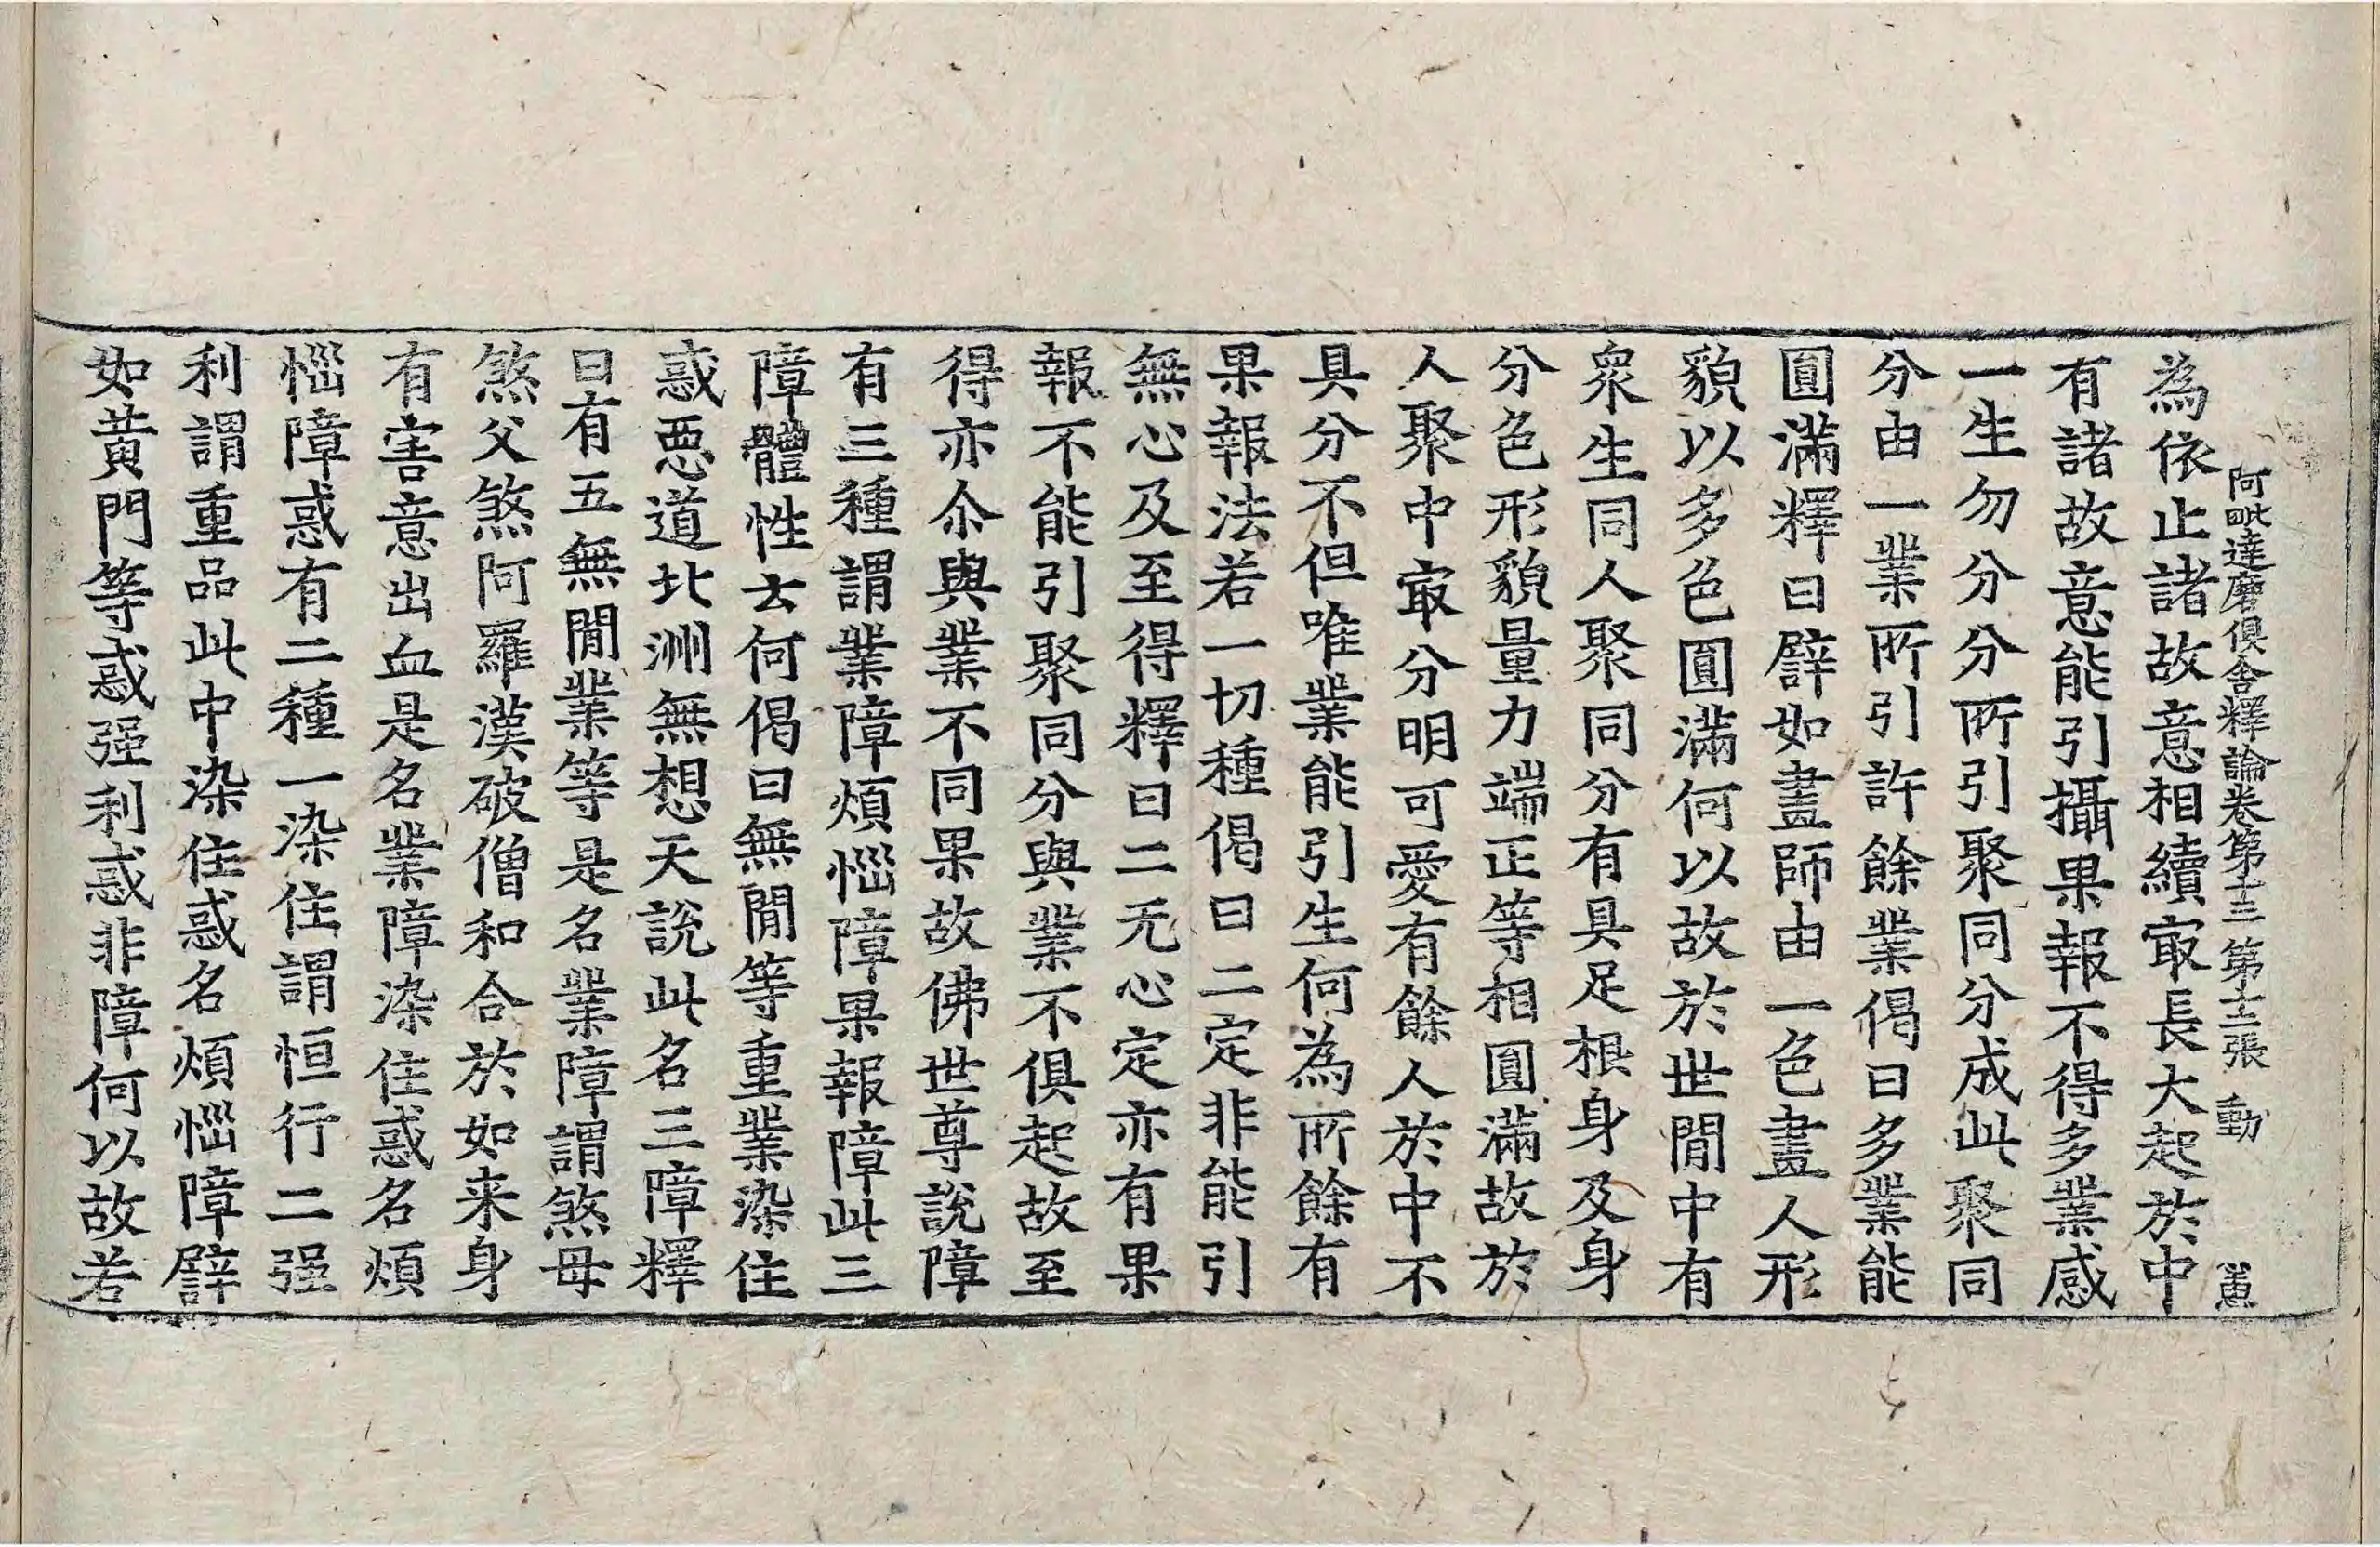 阿毗達磨俱舍釋論卷第十三 第十二張 動
為依止諸故意相續㝡長大起於中
有諸故意能引攝果報不得多業感
一生勿分分所引聚同分成此聚同
分由一業所引許餘業偈曰多業能
圓滿釋曰譬如畫師由一色畫人形
貌以多色圓滿何以故於世間中有
衆生同人聚同分有具足根身及身
分色形貌量力端正等相圓滿故於
人聚中㝡分明可愛有餘人於中不
具分不但唯業能引生何為所餘有
果報法若一切種偈曰二定非能引
無心及至得釋曰二无心定亦有果
報不能引聚同分與業不俱起故至
得亦尒與業不同果故佛世尊說障
有三種謂業障煩惱障果報障此三
障體性云何偈曰無間等重業染住
惑惡道北洲無想天說此名三障釋
曰有五無間業等是名業障謂煞母
煞父煞阿羅漢破僧和合於如来身
有害意出血是名業障染住惑名煩
惱障惑有二種一染住謂恒行二强
利謂重品此中染住惑名煩惱障譬
如黄門等惑强利惑非障何以故若